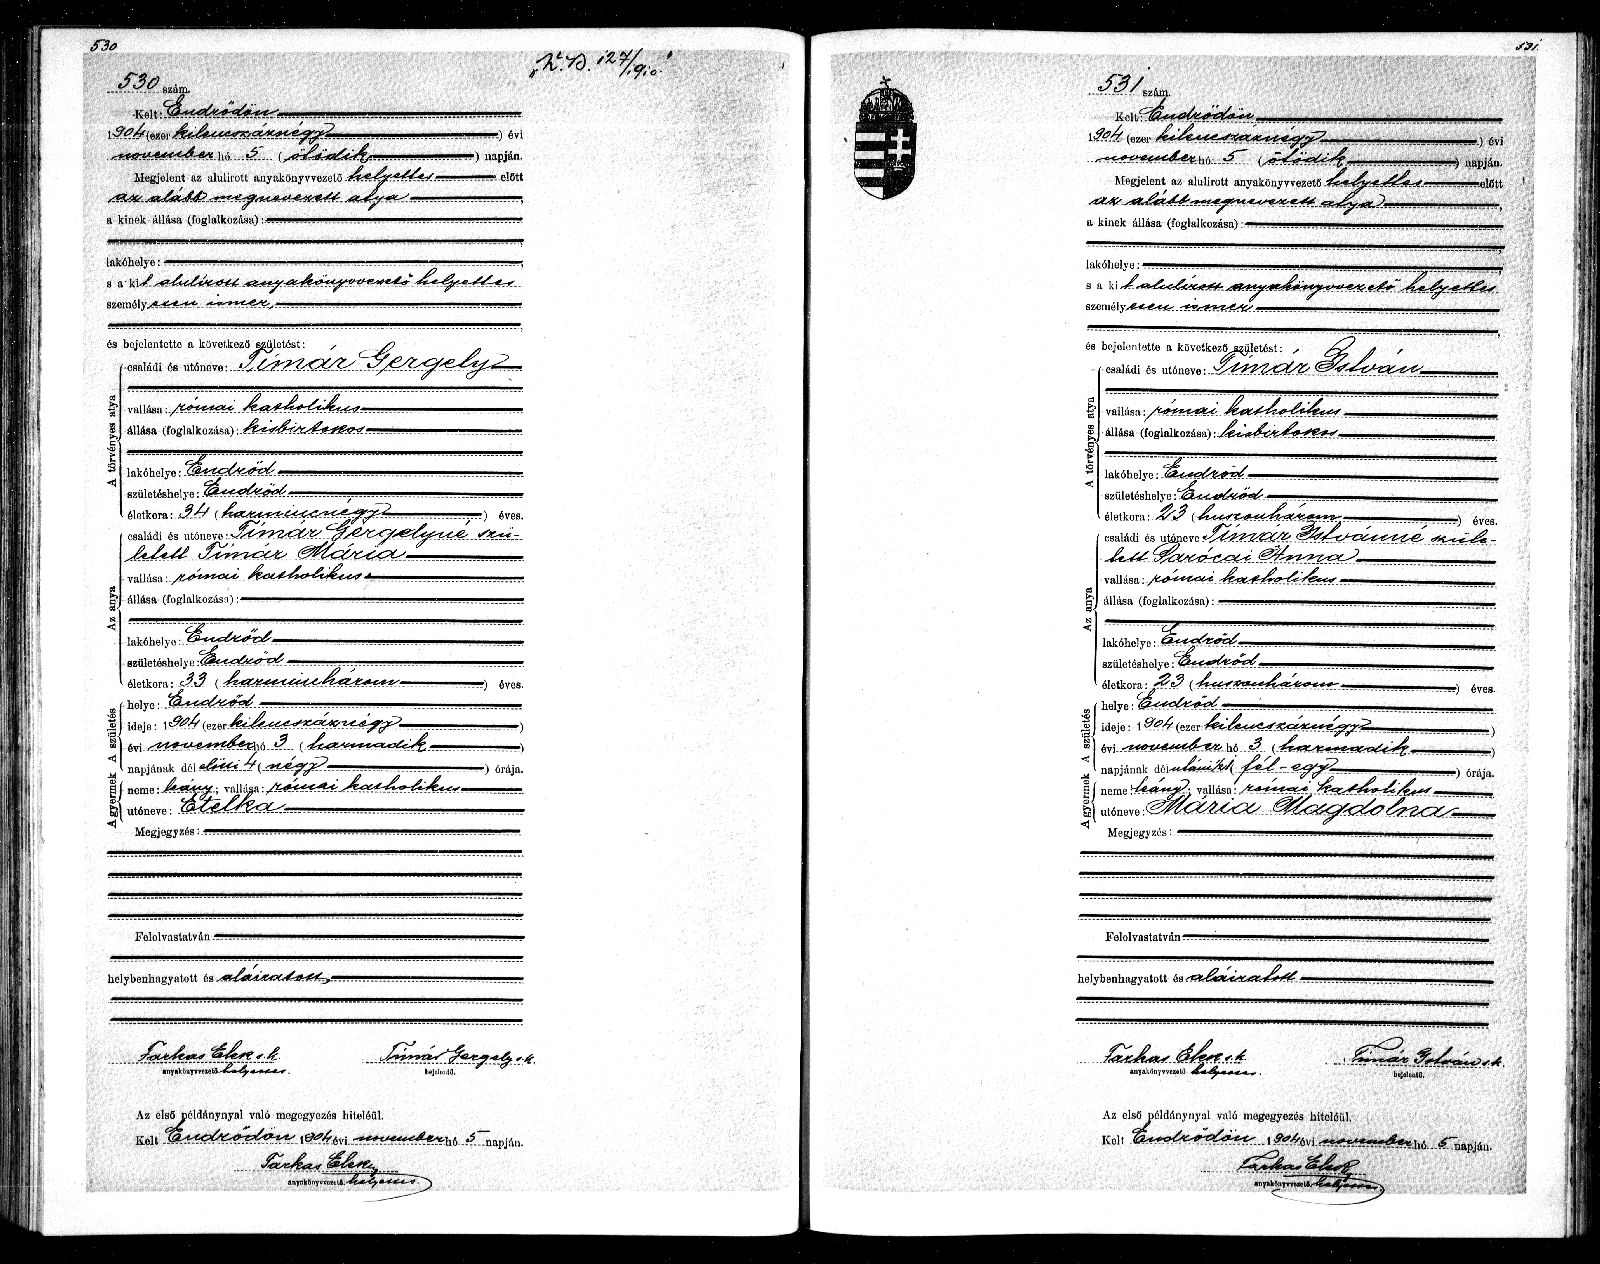 530
127/1910
530 szám.
Kelt: Endrődön
1904 (ezer kilencszáznégy) évi
november hó 5 (ötödik) napján.
Megjelent az alulirott anyakönyvvezető helyettes előtt
az alább megnevezett atya,
a kinek állása (foglalkozása):
lakóhelye:
s a kit alulírott anyakönyvvezető helyettes
személyesen ismer,
és bejelentette a következő születést:
A törvényes atya
családi és utóneve: Tímár Gergely
vallása: római katholikus
állása (foglalkozása): kisbirtokos
lakóhelye: Endrőd
születéshelye: Endrőd
életkora: 34 (harmincnégy) éves.
Az anya
családi és utóneve: Tímár Gergelyné szü-
letett Tímár Mária
vallása: római katholikus
állása (foglalkozása):
lakóhelye: Endrőd
születéshelye: Endrőd
életkora: 33 (harminchárom) éves.
A születés
helye: Endrőd
ideje: 1904 (ezer kilencszáznégy)
évi november hó 3 (harmadik)
napjának délelőtti 4 (négy) órája.
A gyermek
neme: leány; vallása: római katholikus
utóneve: Etelka
Megjegyzés:
Felolvastatván
helybenhagyatott és aláiratott,
Farkas Elek s.k. Tímár Gergely s.k.
anyakönyvvezető helyettes. bejelentő.
Az első példánynyal való megegyezés hiteléül.
Kelt Endrődön 1904 évi november hó 5 napján.
Farkas Elek
anyakönyvvezető. helyettes.
531.
531 szám.
Kelt: Endrődön
1904 (ezer kilencszáznégy) évi
november hó 5 (ötödik) napján.
Megjelent az alulirott anyakönyvvezető helyettes előtt
az alább megnevezett atya,
a kinek állása (foglalkozása):
lakóhelye:
s a kit alulírott anyakönyvvezető helyettes
személyesen ismer
és bejelentette a következő születést:
A törvényes atya
családi és utóneve: Tímár István
vallása: római katholikus
állása (foglalkozása): kisbirtokos
lakóhelye: Endrőd
születéshelye: Endrőd
életkora: 23 (huszonhárom) éves.
Az anya
családi és utóneve Tímár Istvánné szüle-
tett Parócai Anna
vallása: római katholikus
állása (foglalkozása):
lakóhelye: Endrőd
születéshelye: Endrőd
életkora: 23 (huszonhárom) éves.
A születés
helye: Endrőd
ideje: 1904 (ezer kilencszáznégy)
évi november hó 3 (harmadik)
napjának délutáni (fél-egy) órája.
A gyermek
neme: leány; vallása: római katholikus
utóneve: Mária Magdolna
Megjegyzés:
Felolvastatván
helybenhagyatott és aláiratott
Farkas Elek s.k. Tímár István s.k.
anyakönyvvezető helyettes. bejelentő.
Az első példánynyal való megegyezés hiteléül.
Kelt Endrődön 1904 évi november hó 5 napján.
Farkas Elek
anyakönyvvezető. helyettes.